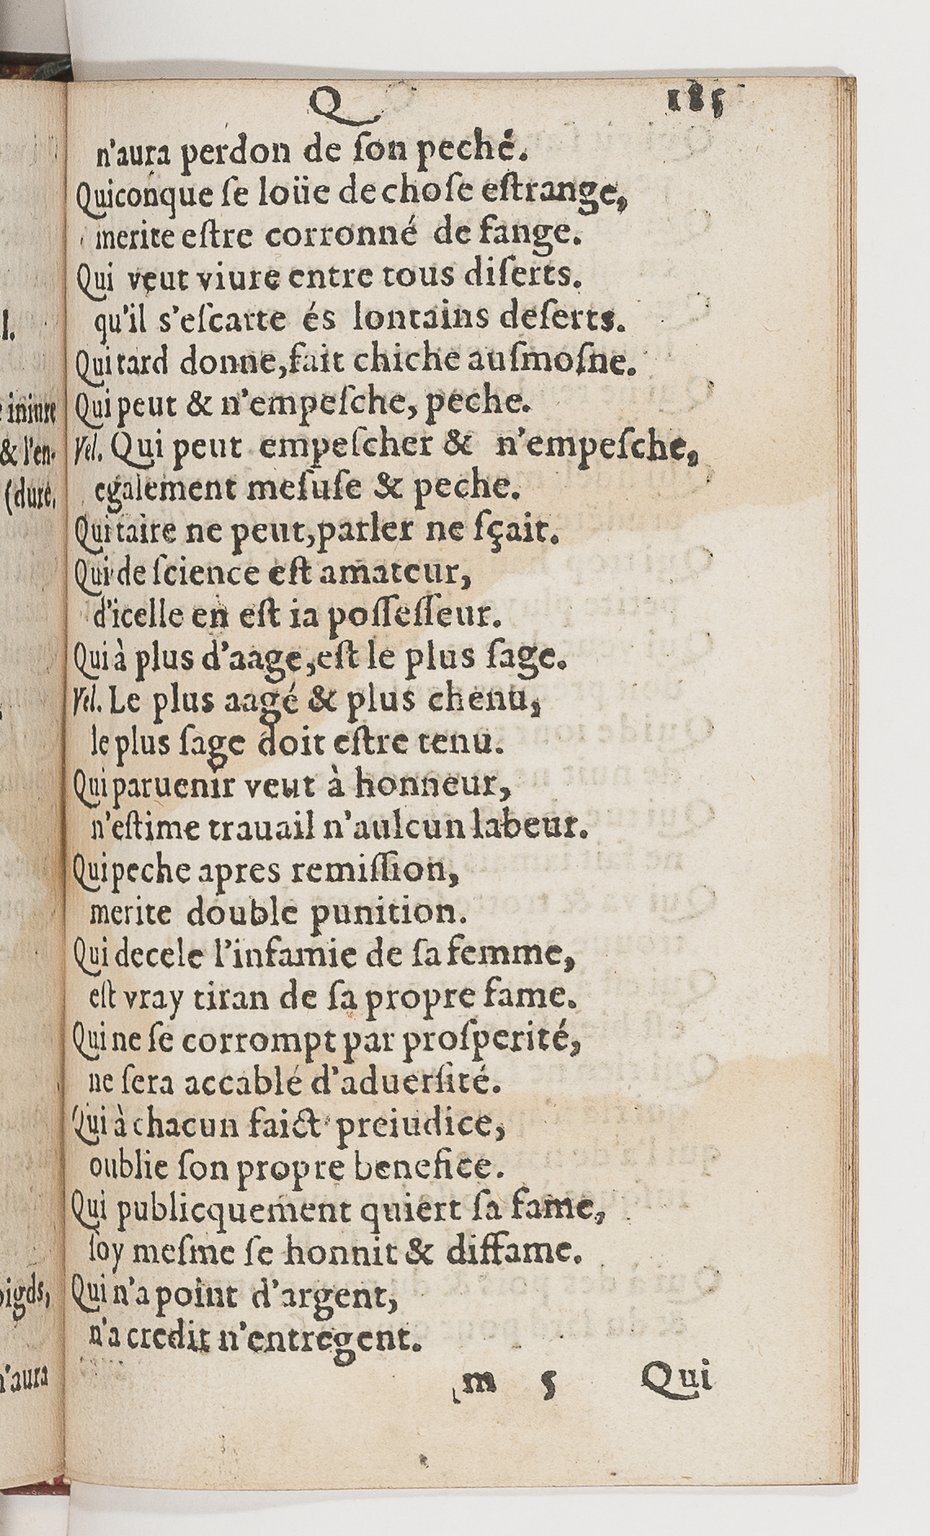 Q 185
n'aura perdon de ſon peché.
Quiconque ſe loüe de choſe eſtrange,
merite eſtre corronné de fange.
Qui veut viure entre tous diſerts.
qu'il s'eſcarte és lontains deſerts.
Qui tard donne, fait chiche auſmoſne.
Qui peut & n'empeſche, peche.
Vel. Qui peut empeſcher & n'empeſche,
egalement meſuſe & peche.
Qui taire ne peut, parler ne ſçait.
Qui de ſcience eſt amateur,
d'icelle en eſt ia poſſeſſeur.
Qui à plus d'aage, eſt le plus ſage.
Vel. Le plus aagé & plus chenu,
le plus ſage doit eſtre tenu.
Qui paruenir veut à honneur,
n'eſtime trauail n'aulcun labeur.
Qui peche apres remiſſion,
merite double punition.
Qui decele l'infamie de ſa femme,
eſt vray tiran de ſa propre fame.
Qui ne ſe corrompt par proſperité,
ne ſera accablé d'aduerſité.
Qui à chacun faict preiudice,
oublie ſon propre benefice.
Qui publicquement quiert ſa fame,
ſoy meſme ſe honnit & diffame.
Qui n'a point d'argent,
n'a credit n'entregent.
m 5 Qui
l.
iniure
& l'en-
(dure,
oigds,
n'aura